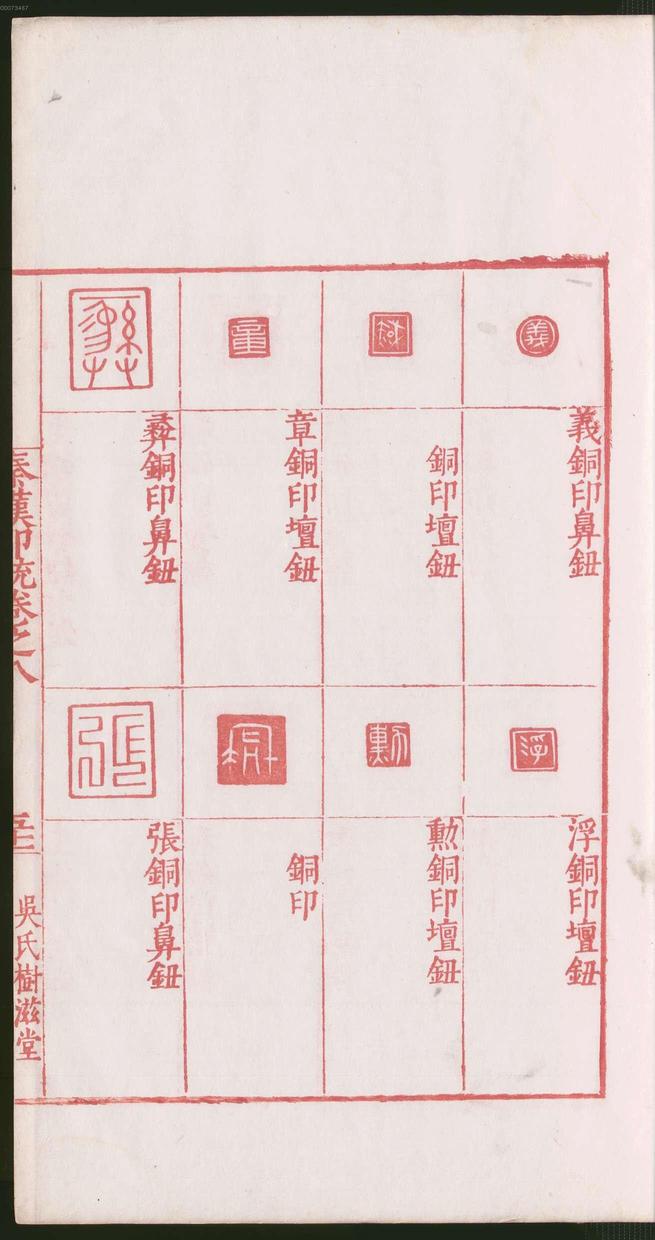 00073467
義
義銅印鼻鈕
銅印壇鈕
章
章銅印壇鈕
彝
彝銅印鼻鈕
浮
浮銅印壇鈕
勳
勳銅印壇鈕
銅印
張
張銅印鼻鈕
秦漢印統卷之八
吳氏樹滋堂